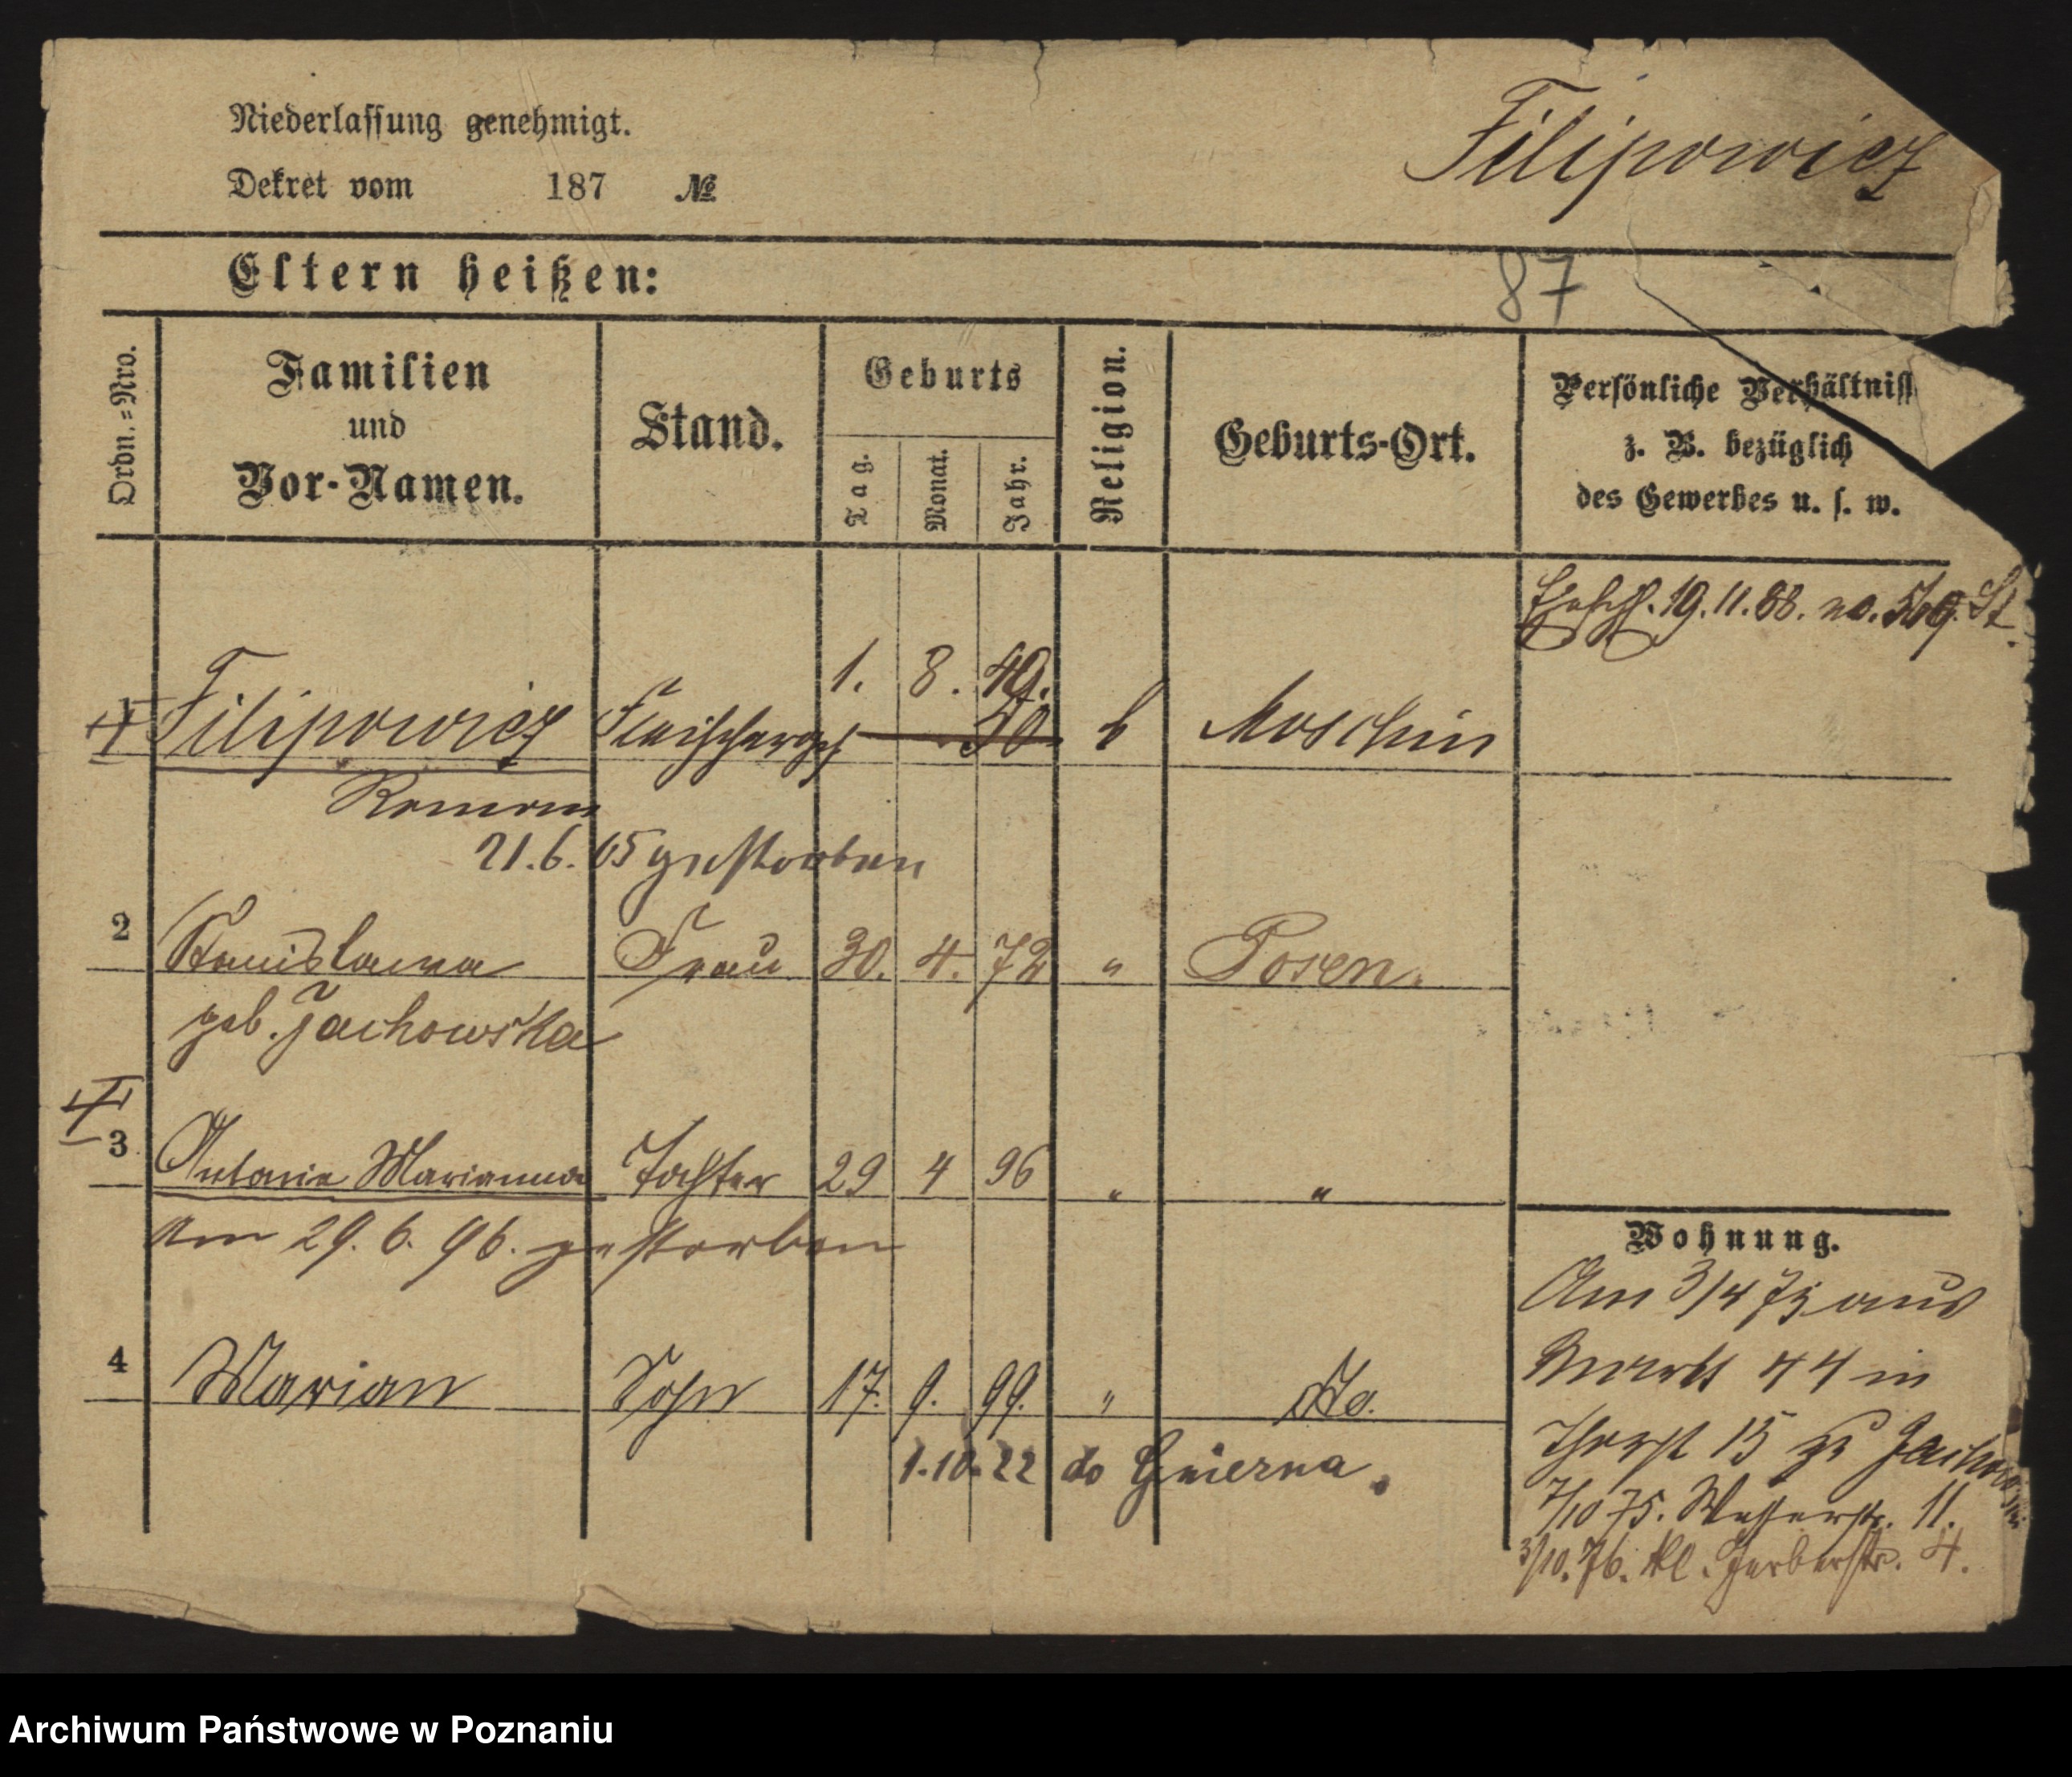 Niederlassung genehmigt.
Filipowicz
Dekret vom 187 №
Eltern heißen:
87
Ordn.=Nro.
Familien
und
Vor-Namen.
Stand.
Geburts
Tag.
Monat.
Jahr.
Religion.
Geburts-Ort.
Persönliche Verhältniss
z. B. bezüglich
des Gewerbes u. s. w.
19.11.88. no. St.
1. 8. 49.
1 Filipowicz Fleischerges 50. k Moschin
Roman
21.6.15 gestorben
2 Stanislawa Frau 30. 4. 72 " Posen.
geb. Jachowska
3 Antonie Marianna Tochter 29 4 96 " "
Am 29. 6. 96. gestorben
4 Marian Sohn 17. 9. 99. " do.
1.10.22 do Gniezna.
Wohnung.
Am 3/4 75 aus
Markt 44 in
15 zu
7/10 75. Wasserstr. 11.
3/10. 76. kl. Gerberstr. 4.
Archiwum Państwowe w Poznaniu